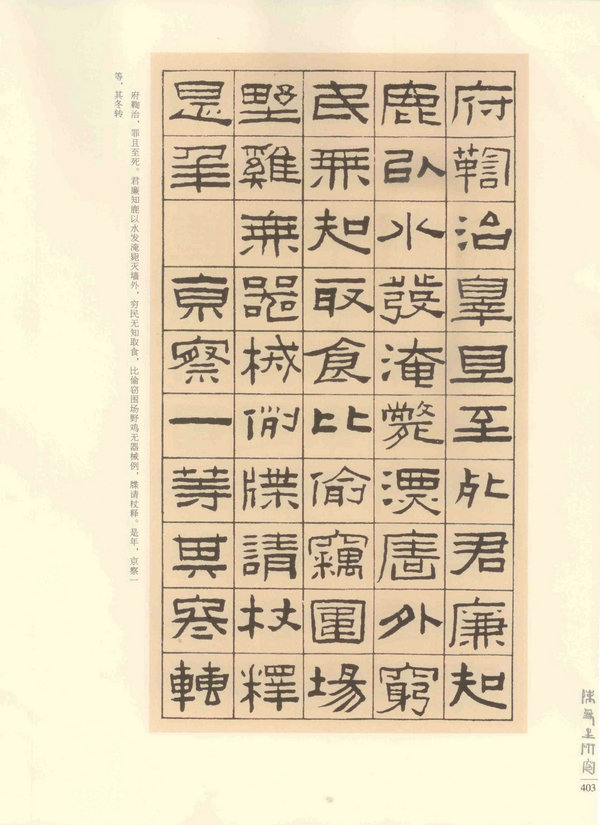 府鞫治辠且至死君廉知
鹿以水發淹斃外窮
民無知取食比偷竊圍場
墅雞無器械例牒請杖釋
是年京察一等其冬轉
府鞫治，罪且至死。君廉知鹿以水发淹毙灭墙外，穷民无知取食，比偷窃围场野鸡无器械例，牒请杖释。是年，京察一
等，其冬转
403